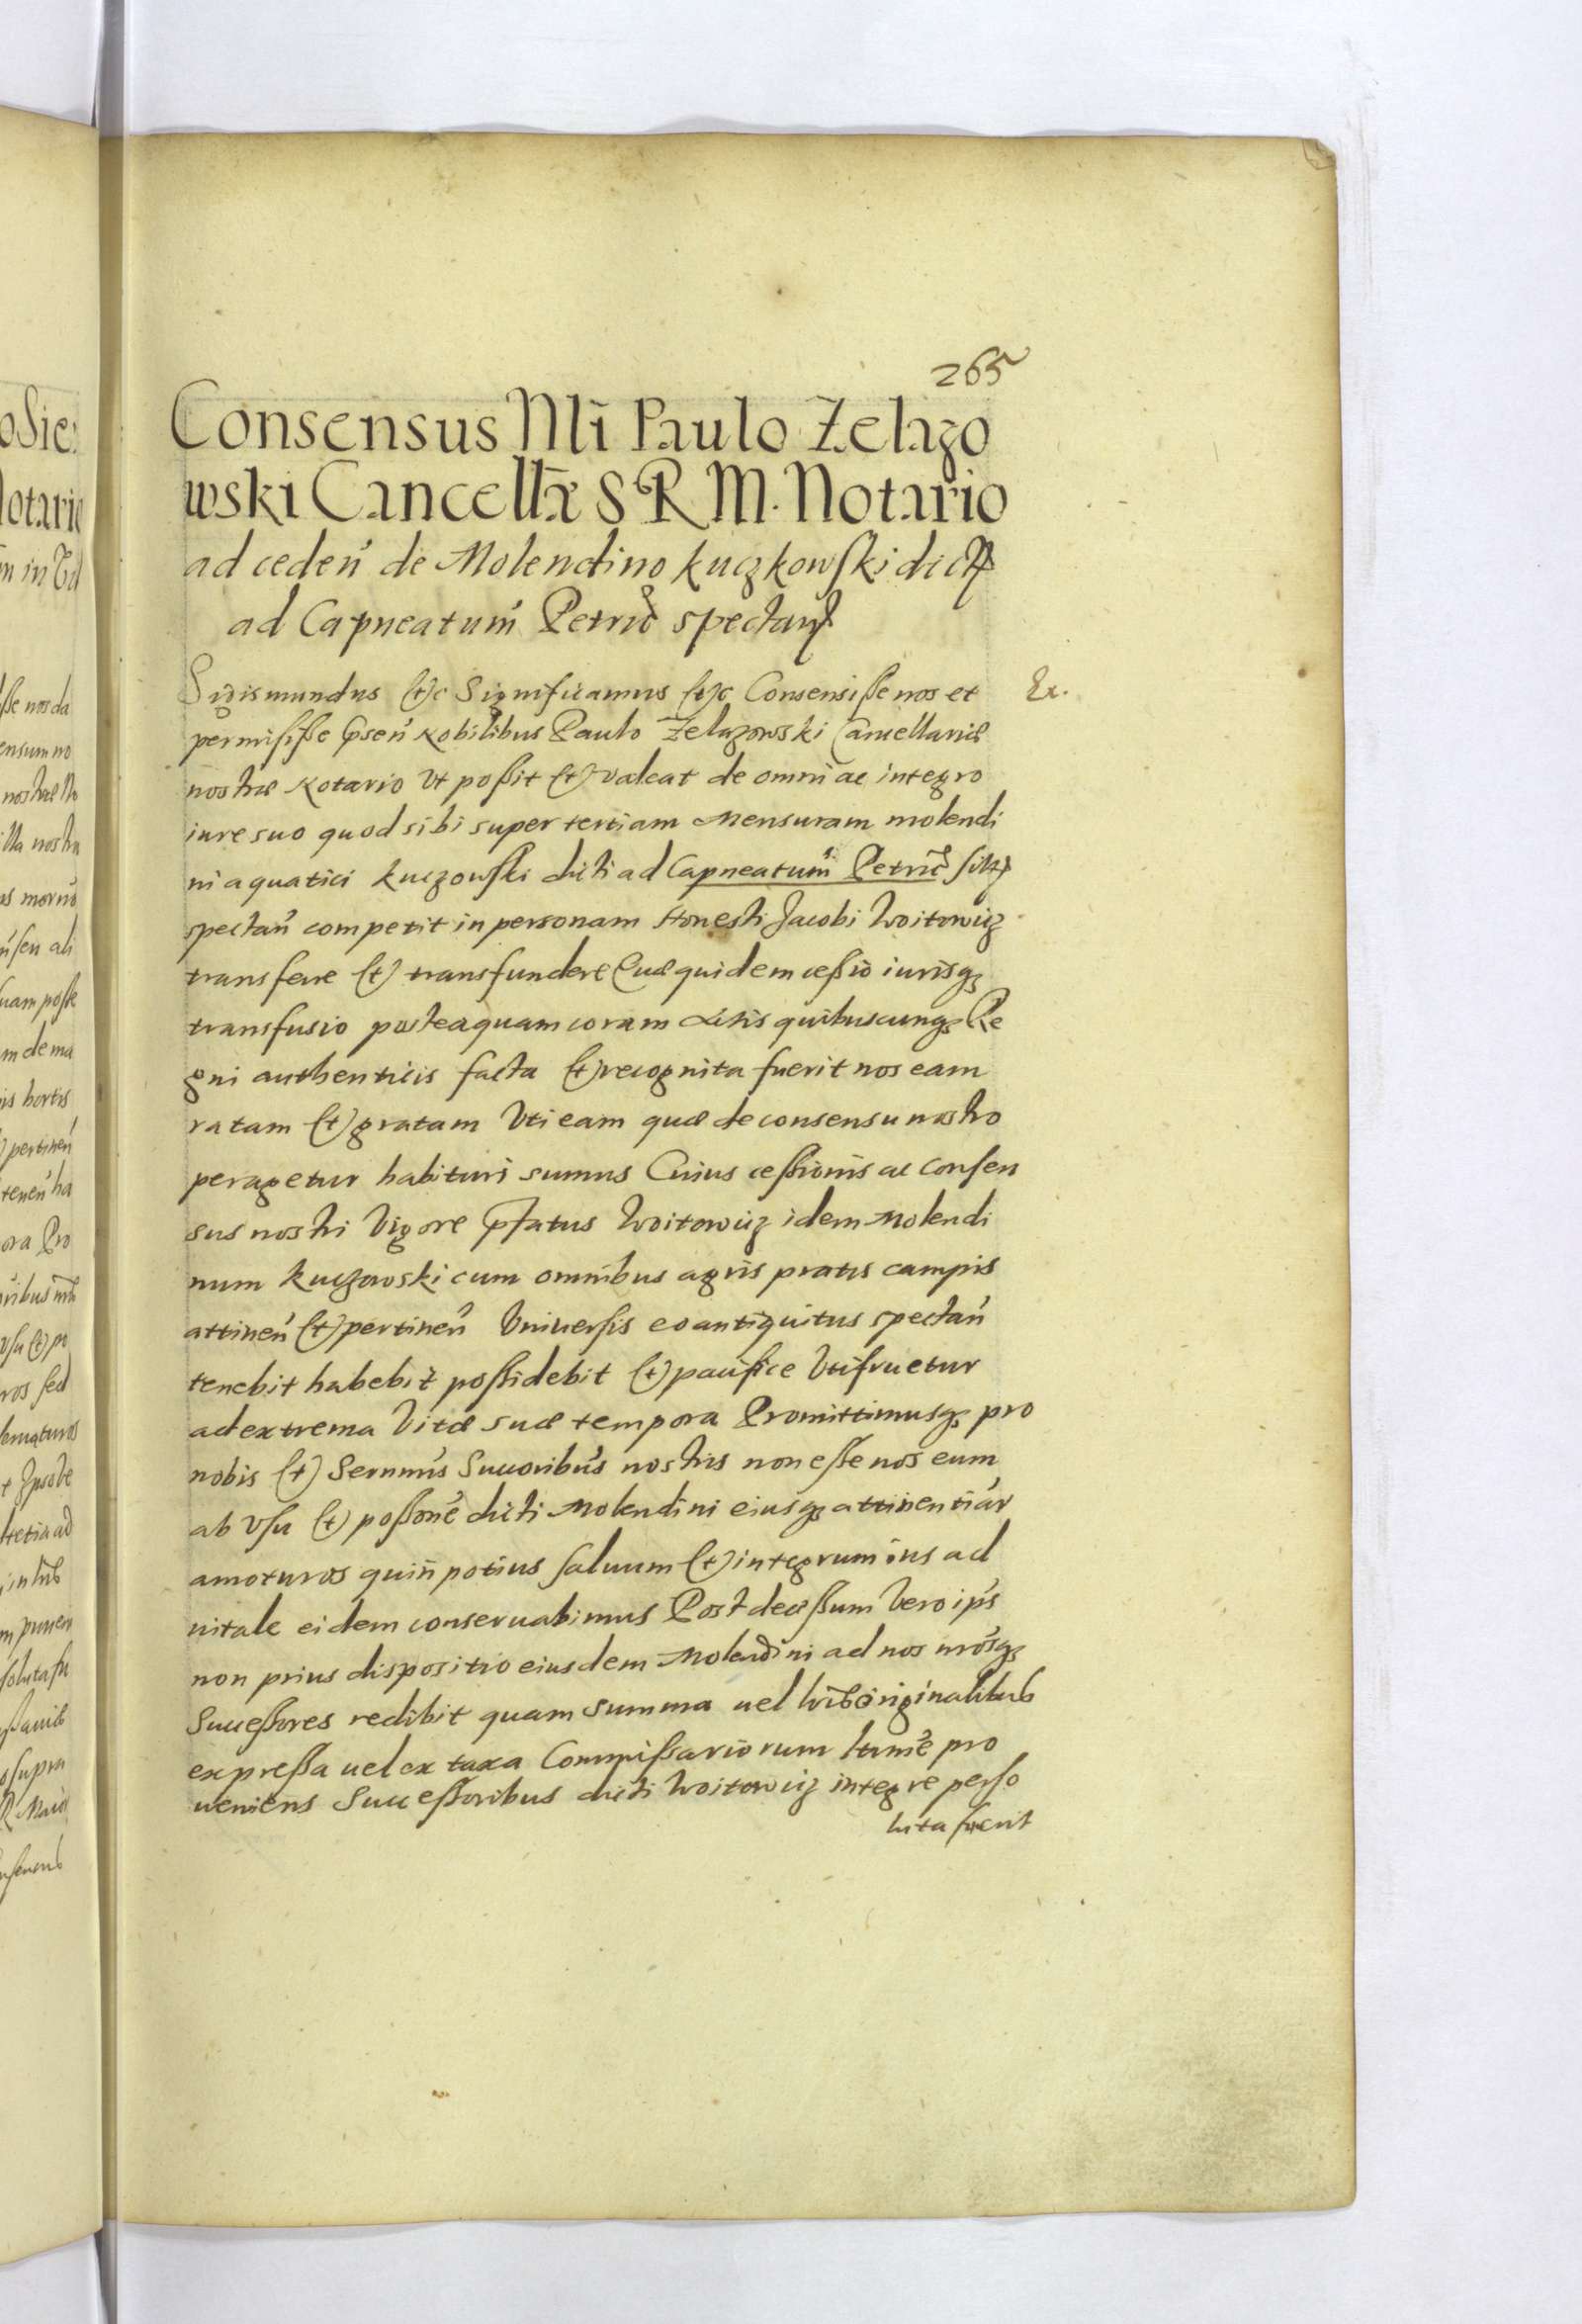 265
Consensus Nli Paulo Zelazo
wski Cancellæ S R M. Notario
ad ceden de Molendino Kuczkowski dict
ad Capneatum Petric spectan
Sigismundus etc Significamus etc Consensisse nos et
Ex.
permisisse psen Nobilibus Paulo Zelazowski Cancellariæ
nostræ Notario Vt possit et valeat de omni ac integro
iure suo quod sibi super tertiam Mensuram molendi
ni aquatici Kuczowski dicti ad Capneatum Petric sit
spectan competit in personam Honesti Jacobi Woitowicz
transferre et transfundere Quæ quidem cessio iurisq
transfusio posteaquam coram Actis quibuscunq Re
gni authenticis facta et recognita fuerit nos eam
ratam et gratam Vti eam quæ de consensu nostro
peragetur habituri sumus Cuius cessionis ac Consen
sus nostri Vigore pfatus Woitowicz idem Molendi
num Kuczowski cum omnibus agris pratis campis
attinen et pertinen Vniuersis eo antiquitus spectan
tenebit habebit possidebit et pacifice Vtifruetur
ad extrema Vitæ suæ tempora Promittimusq pro
nobis et Serenmis Succoribus nostris non esse nos eum
ab Vsu et possone dicti Molendini eiusq attinentiar
amoturos quin potius saluum et integrum ius ad
uitale eidem conseruabimus Post decessum Vero ipis
non prius dispositio eiusdem Molendini ad nos nrosq
Successores redibit quam summa uel lris originalibus
expressa uel ex taxa Commissariorum ltime pro
ueniens Successoribus dicti Woitowicz integre perso
luta fuerit